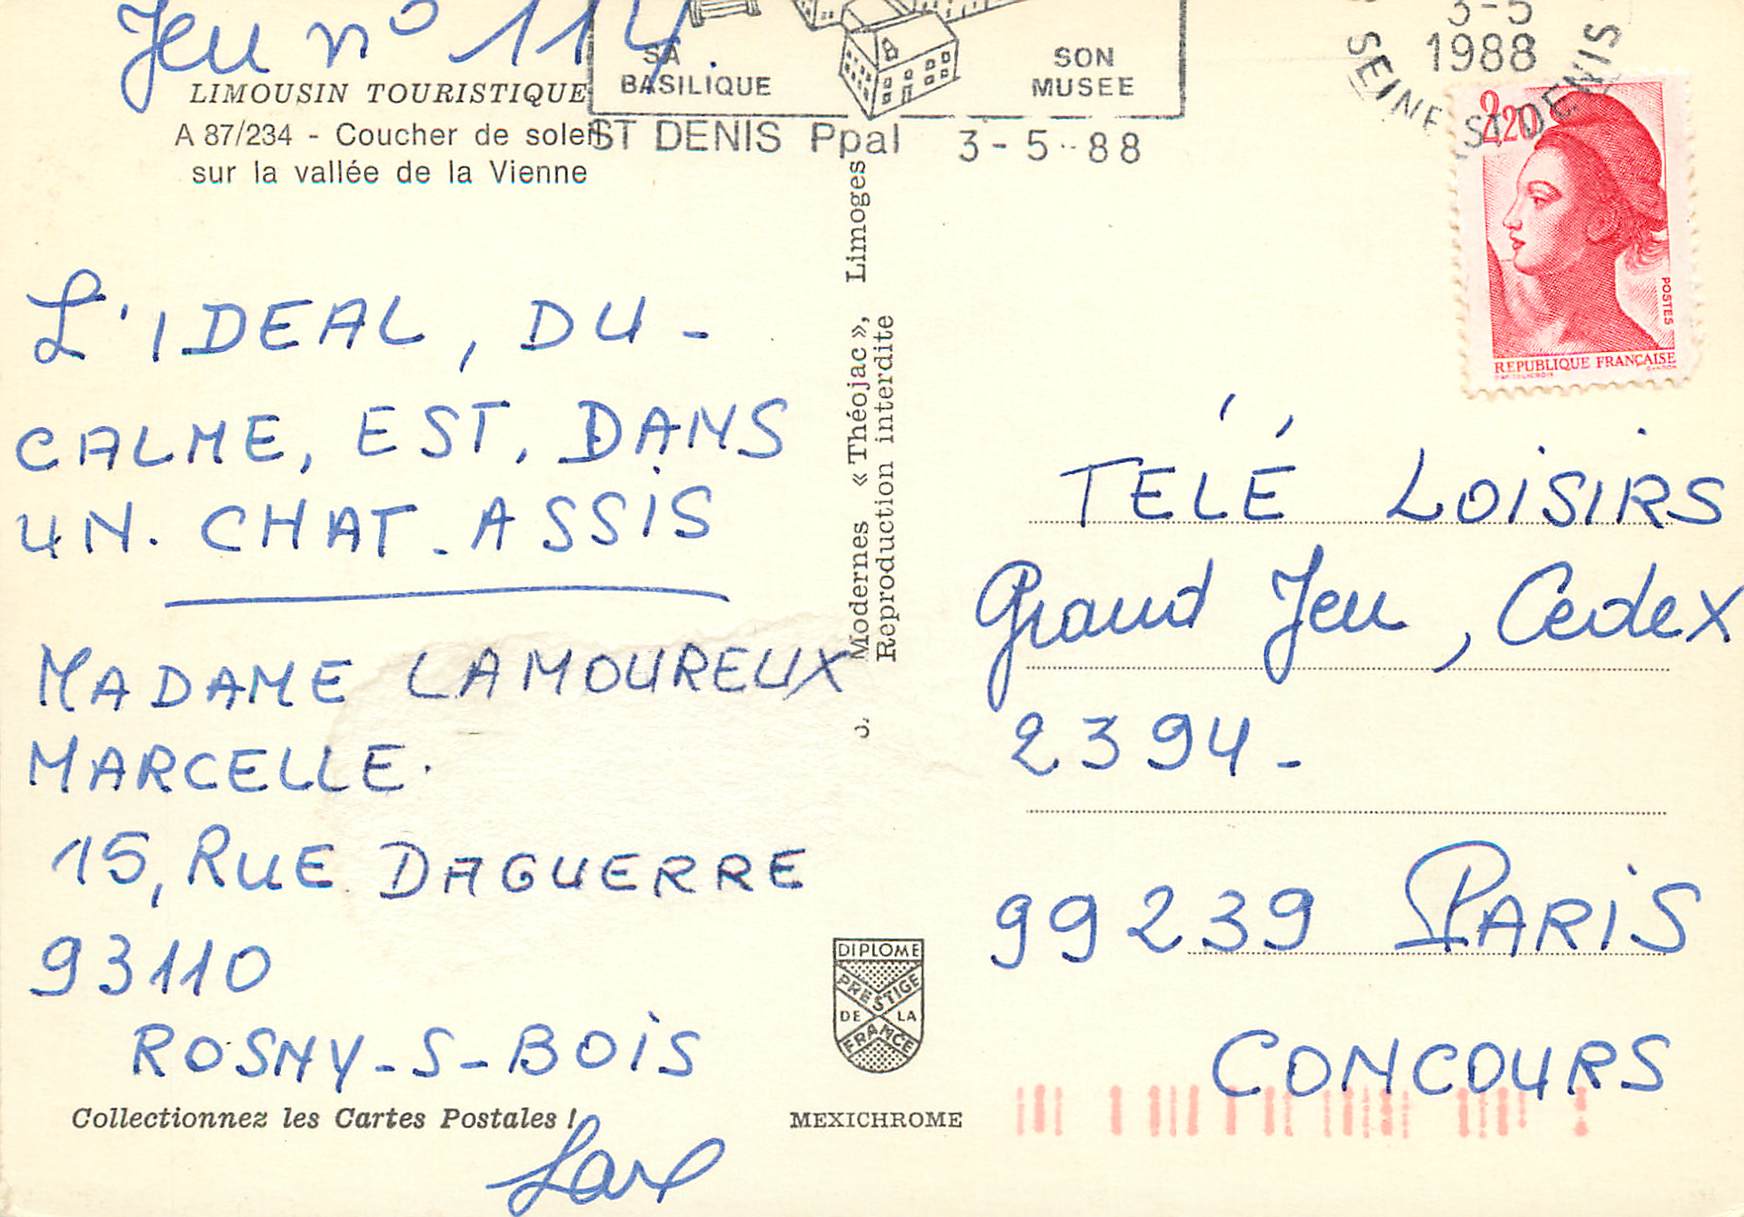 Jeu n° 114.
LIMOUSIN TOURISTIQUE
A 87/234 - Coucher de soleil
sur la vallée de la Vienne
L'IDEAL, DU -
CALME, EST, DANS
UN. CHAT. ASSIS
MADAME LAMOUREUX
MARCELLE.
15, RUE DAGUERRE
93110
ROSNY-S-BOIS
Collectionnez les Cartes Postales !
SA
BASILIQUE
SON
MUSEE
ST DENIS Ppal 3-5-88
Modernes « Théojac », Limoges
Reproduction interdite
DIPLOME
PRESTIGE
DE LA
FRANCE
MEXICHROME
3-5
1988
SEINE ST DENIS
2,20
POSTES
REPUBLIQUE FRANÇAISE
TÉLÉ LOISIRS
Grand Jeu, Cedex
2394-
99239 PARIS
CONCOURS